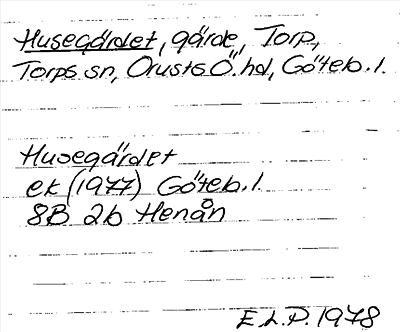 Husegärdet, gärde, Torp,
Torps sn, Orusts Ö. hd, Göteb. l.
Husegärdet
ek (1977) Göteb. l.
8B 2b Henån
E.L.P. 1978